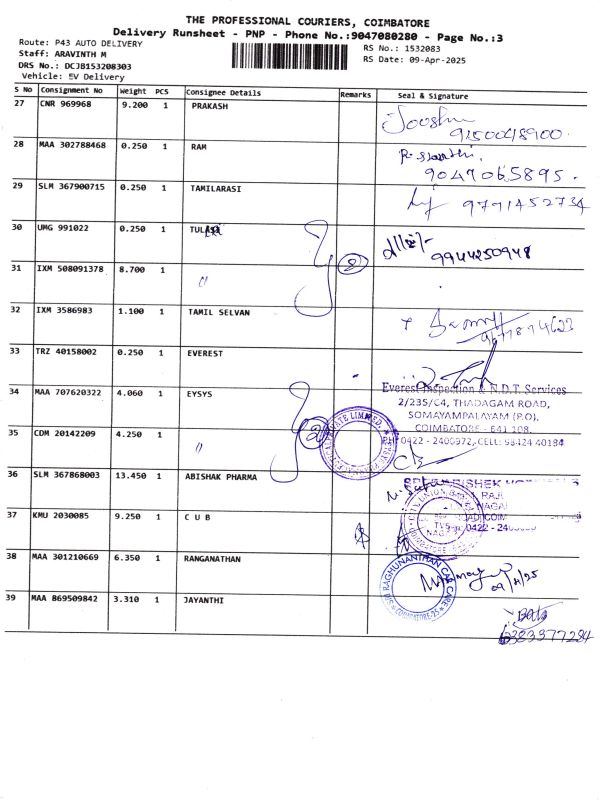 THE PROFESSIONAL COURIERS, COIMBATORE
Delivery Runsheet - PNP - Phone No.:9047080280 - Page No.:3
Route: P43 AUTO DELIVERY
RS No.: 1532083
Staff: ARAVINTH M
RS Date: 09-Apr-2025
DRS No.: DCJB153208303
Vehicle: EV Delivery
S No Consignment No Weight PCS Consignee Details Remarks Seal & Signature
27 CNR 969968 9.200 1 PRAKASH
9150048900
28 MAA 302788468 0.250 1 RAM
9047065895.
29 SLM 367900715 0.250 1 TAMILARASI
9791452734
30 UMG 991022 0.250 1 TULASI
9944250948
31 IXM 508091378 8.700 1 〃 2
32 IXM 3586983 1.100 1 TAMIL SELVAN
33 TRZ 40158002 0.250 1 EVEREST
Everest Inspection & N.D.T. Services
2/235/C4, THADAGAM ROAD,
SOMAYAMPALAYAM (P.O).
COIMBATORE - 641 108.
PH: 0422 - 2400972, CELL: 98424 40184
34 MAA 707620322 4.060 1 EYSYS
35 CDM 20142209 4.250 1 〃 2
36 SLM 367868003 13.450 1 ABISHAK PHARMA
37 KMU 2030085 9.250 1 C U B
38 MAA 301210669 6.350 1 RANGANATHAN
RAGHUNANTHAN CARE
COIMBATORE-25
09/4/25
39 MAA 869509842 3.310 1 JAYANTHI
6383977284